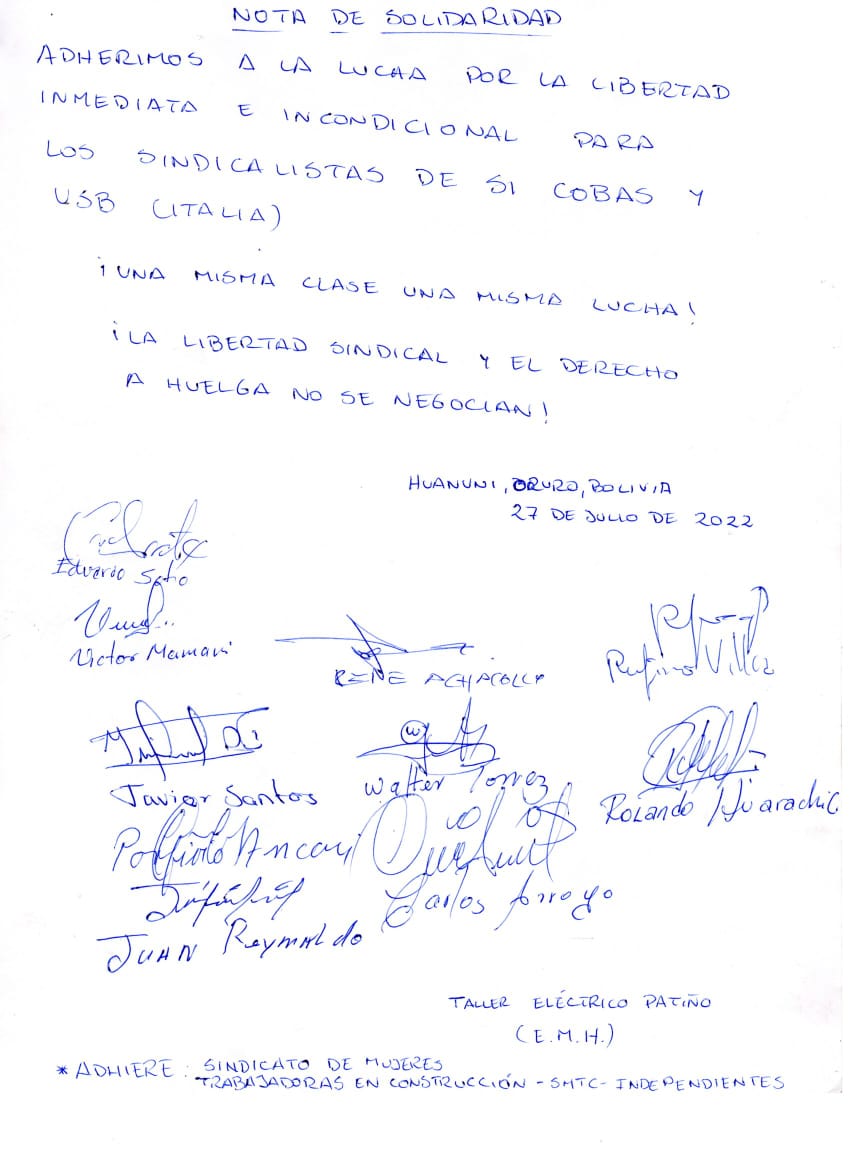 NOTA DE SOLIDARIDAD
ADHERIMOS A LA LUCHA POR LA LIBERTAD
INMEDIATA E INCONDICIONAL PARA
LOS SINDICALISTAS DE SI COBAS Y
USB (ITALIA)
¡UNA MISMA CLASE UNA MISMA LUCHA!
¡LA LIBERTAD SINDICAL Y EL DERECHO
A HUELGA NO SE NEGOCIAN!
HUANUNI, ORURO, BOLIVIA
27 DE JULIO DE 2022
Eduardo Soto
Victor Mamani
RENE ACHACOLLO
Rufino Villca
Javier Santos
Walter Torrez
ROLANDO Huarachi
Porfirio Ancari
Carlos Arroyo
JUAN Reynaldo
TALLER ELÉCTRICO PATIÑO
(E.M.H.)
* ADHIERE: SINDICATO DE MUJERES
TRABAJADORAS EN CONSTRUCCIÓN - SMTC - INDEPENDIENTES